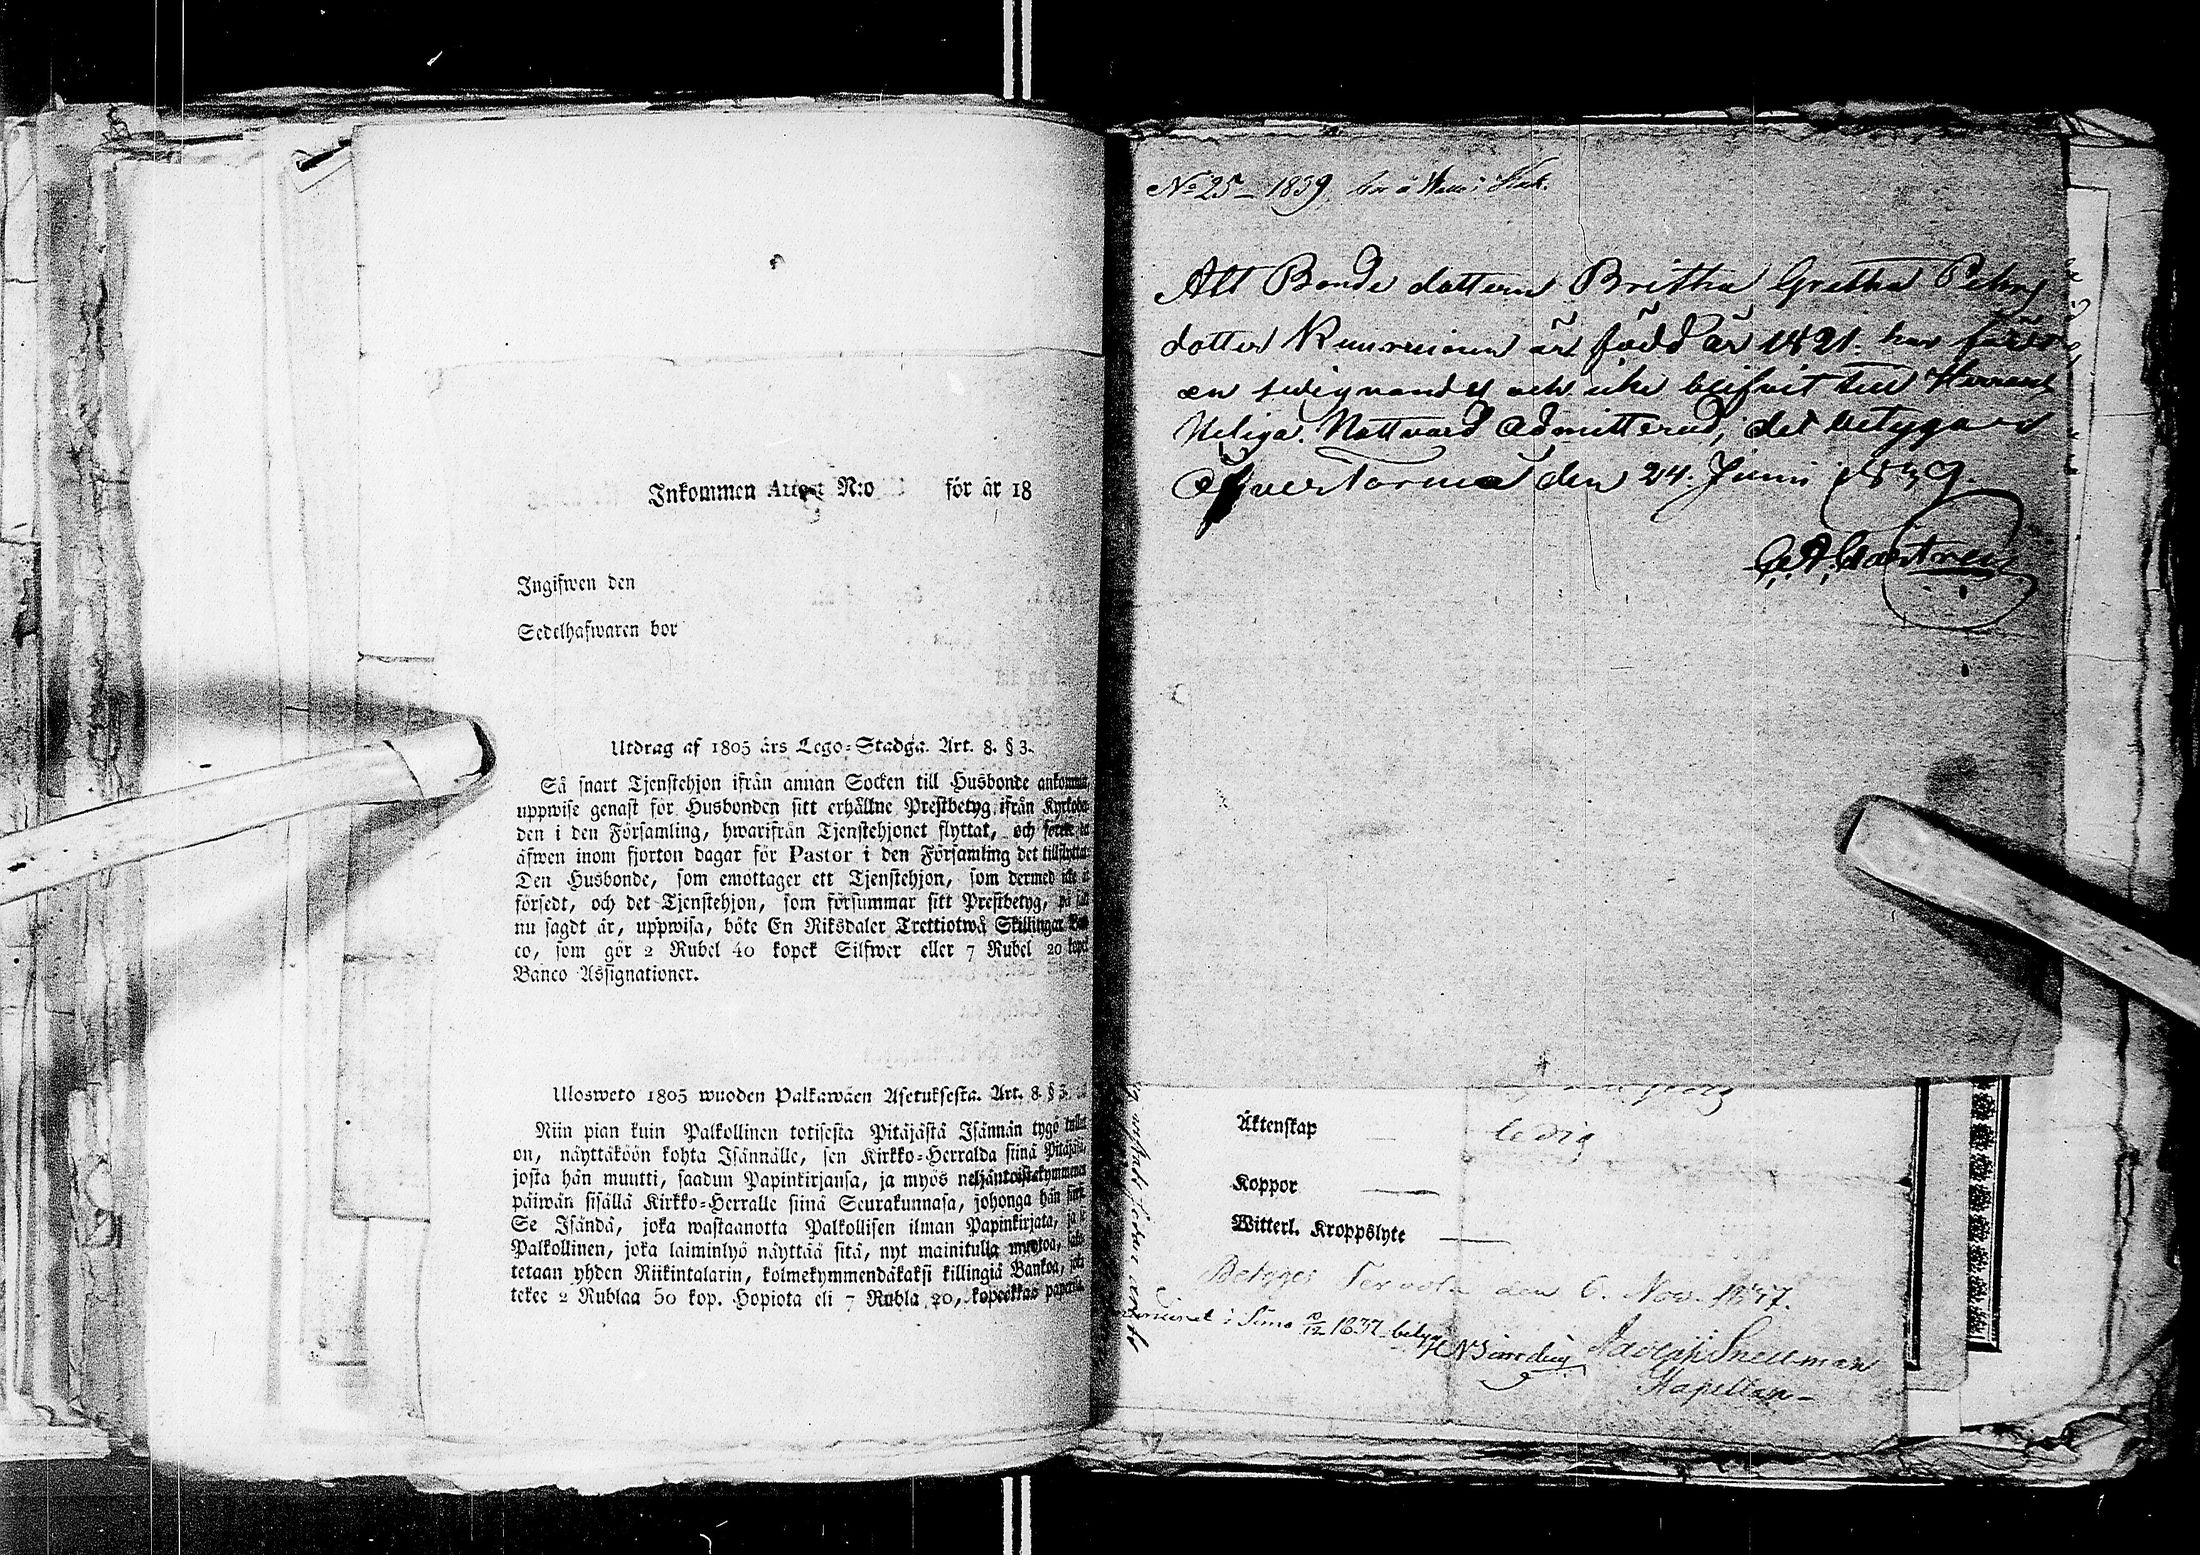 Inkommen Attest N:o för år 18
Ingifwen den
Sedelhafwaren bor
Utdrag af 1805 års Lego-Stadga. Art. 8. § 3.
Så snart Tjenstehjon ifrån annan Socken till Husbonde ankommit,
uppwise genast för Husbonden sitt erhållne Prestbetyg ifrån
den i den Församling, hwarifrån Tjenstehjonet flyttat, och
äfwen inom fjorton dagar för Pastor i den Församling det tillflyttat
Den Husbonde, som emottager ett Tjenstehjon, som dermed icke ä
försedt, och det Tjenstehjon, som försummar sitt Prestbetyg, på sätt
nu sagdt är, uppwisa, böte En Riksdaler Trettiotwå Skillingar Ban-
co, som gör 2 Rubel 40 kopek Silfwer eller 7 Rubel 20 kopek
Banco Assignationer.
Ulosweto 1805 wuoden Palkawäen Asetuksesta. Art. 8. § 3.
Niin pian kuin Palkollinen toisesta Pitäjästä Isännän tygö tullut
on, näyttäköön kohta Isännälle, sen Kirkko-Herralda siinä Pitäjäsä,
josta hän muutti, saadun Papinkirjansa, ja myös neljäntoistakymmenen
päiwän sisällä Kirkko-Herralle siinä Seurakunnasa, johonga hän siirsi
Se Isändä, joka wastaanotta Palkollisen ilman Papinkirjata, ja
Palkollinen, joka laiminlyö näyttää sitä, nyt mainitulla muotoa,
tetaan yhden Riikintalarin, kolmekymmendäkaksi killingiä Bankoa, joka
tekee 2 Rublaa 50 kop. Hopiota eli 7 Rubla 20, kopeekkaa paperia.
No 25 – 1839.
Att Bonde dottern Britha Gretha Pehrs
dotter är född år 1821. har
en och icke blifvit till Herrans
Heliga Nattvard Admitterad, det betygas
Öfver Tornea den 24. Junii 1839.
Äktenskap — ledig
Koppor —
Witterl. Kroppslyte —
Betyges Tervola den 6. Nov. 1837.
i Simo 1837 betygar
Snellman
Kapellan